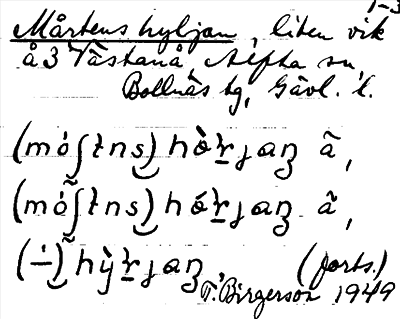 1-3
Mårtens hyljan, liten vik
å 3 Västanå, Alfta sn,
Bollnäs tg, Gävl. l.
(mó̃ʃtns) hò̱rjaŋ ã,
(mó̃ʃtns) hó̱rjaŋ ã,
(–́) hỳ̱rjaŋ (forts.)
T. Birgerson 1949